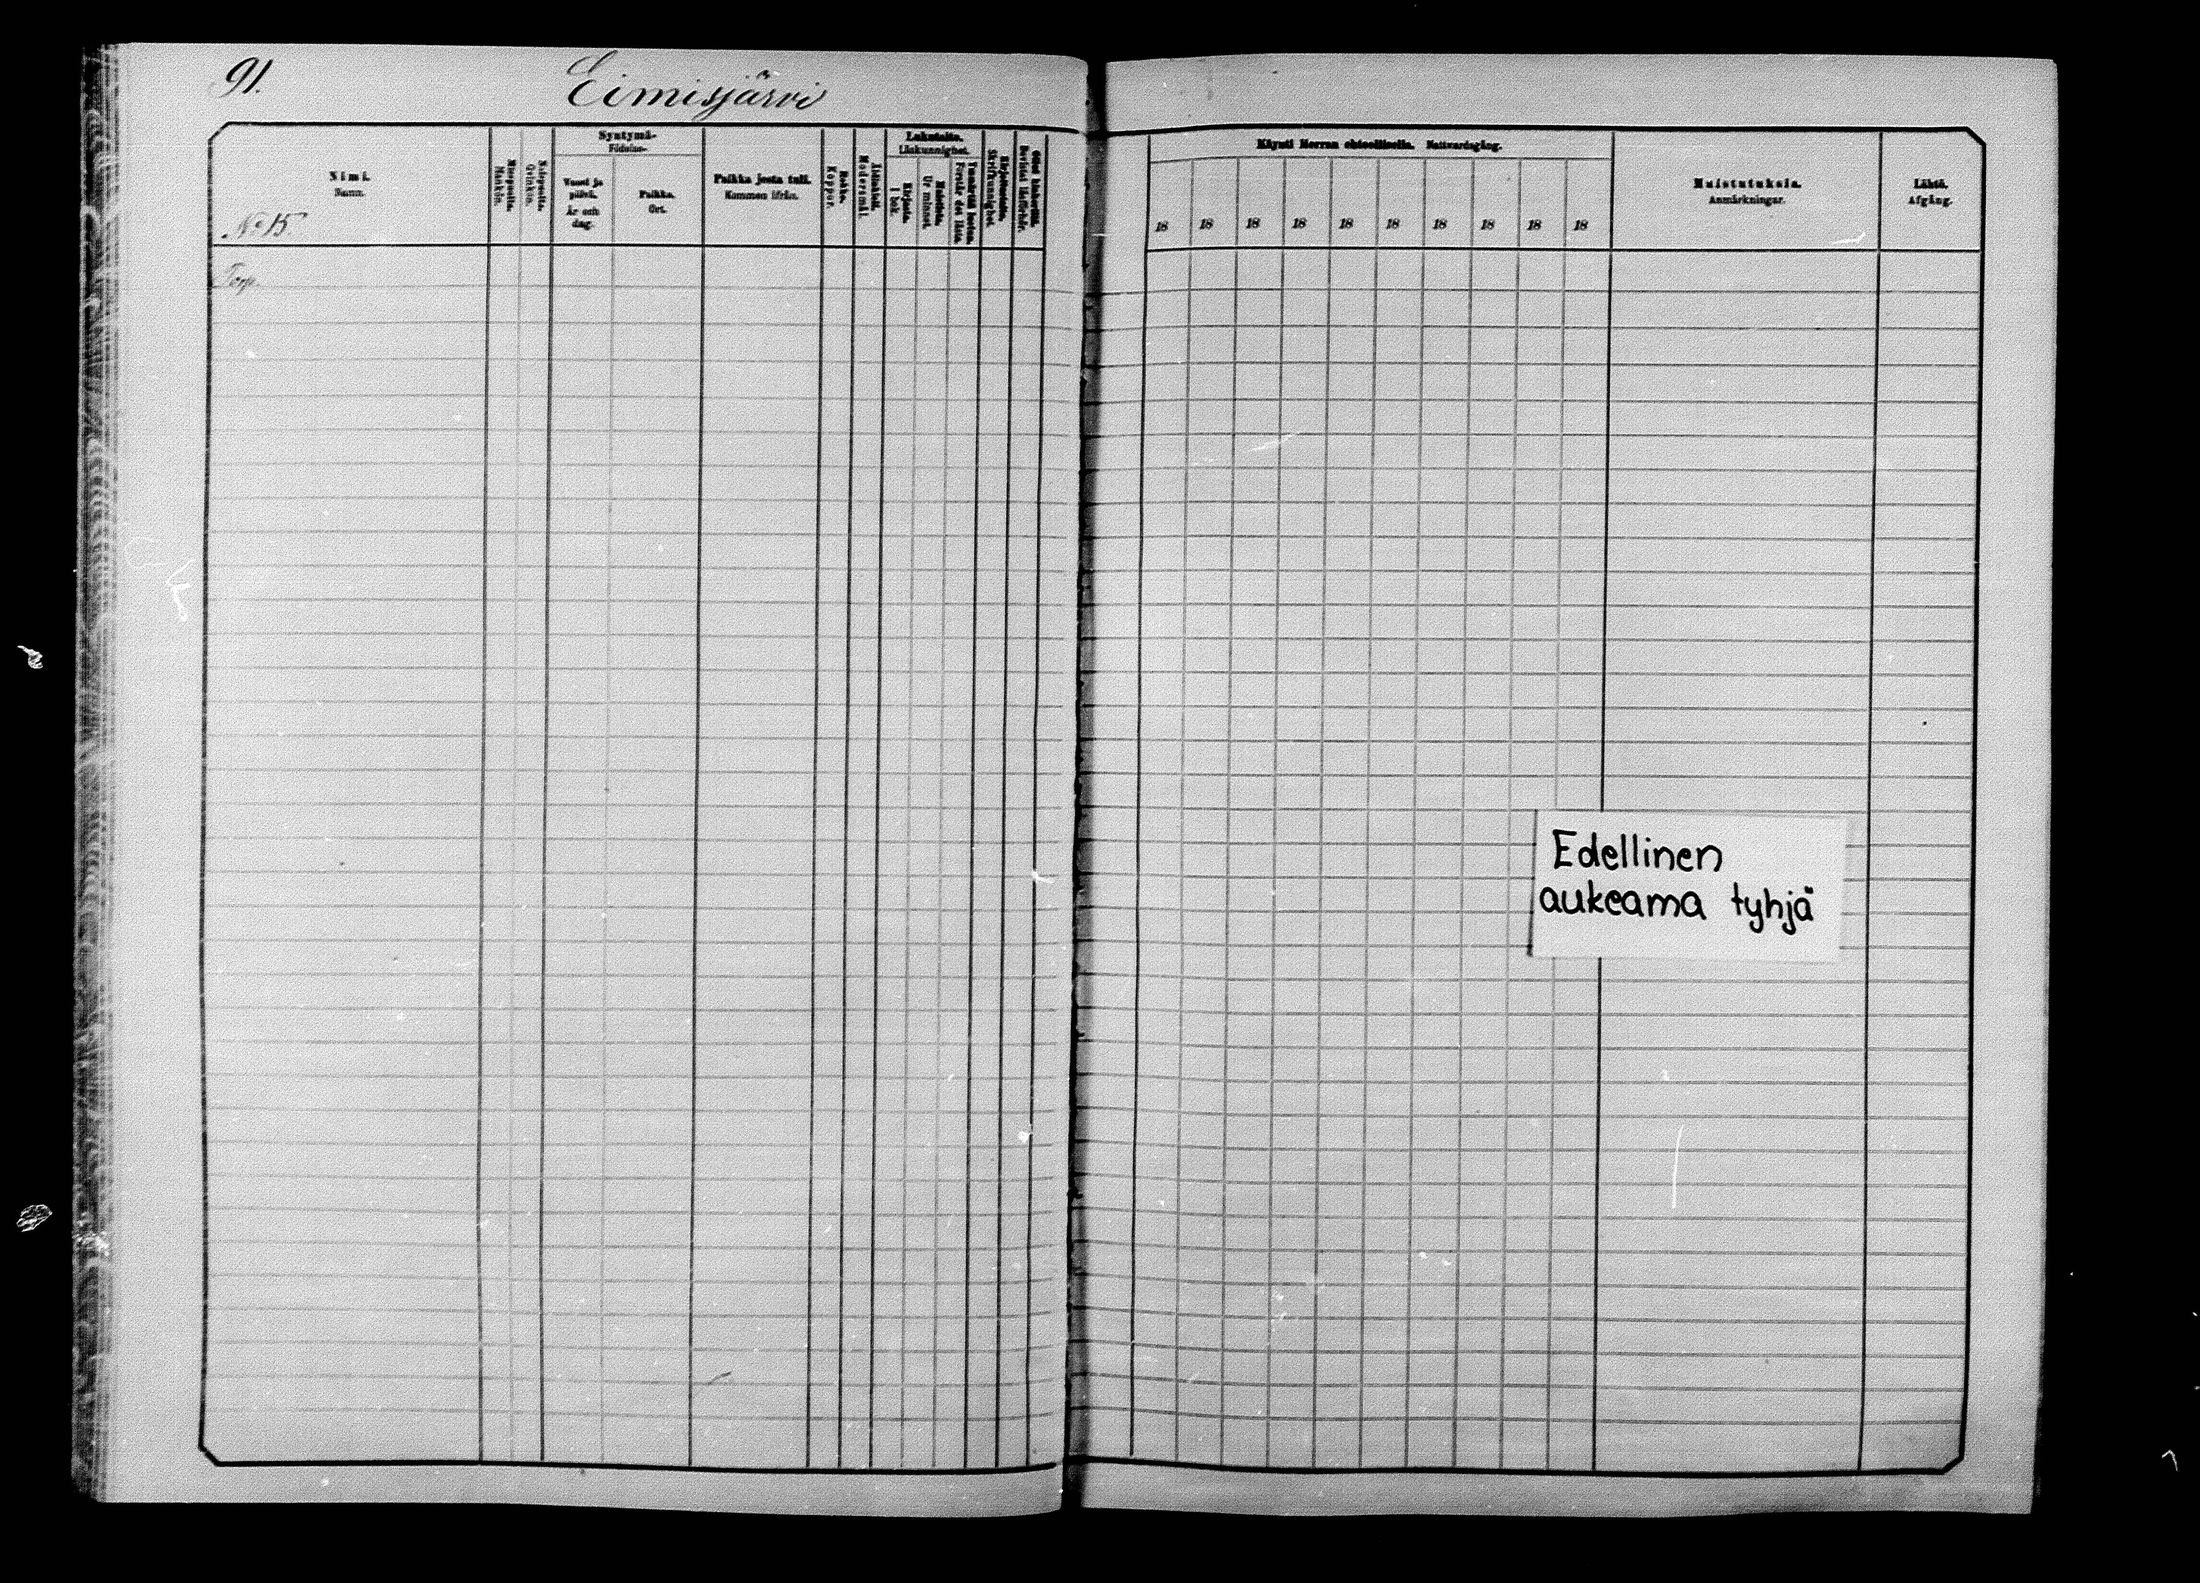 91.
Eimisjärvi
Nimi.
Namn.
No 15
Miespuolia.
Mankön.
Naispuolia.
Qvinkön.
Syntymä-
Födelse-
Vuosi ja
päivä.
År och
dag.
Paikka.
Ort.
Paikka josta tuli.
Kommen ifrån.
Rokko.
Koppor.
Äidinkieli.
Modersmål.
Lukutaito.
Läskunnighet.
Kirjasta.
I bok.
Ur minnet.
Förstår det lästa.
Kirjoitustaito.
Skrifkunnighet.
Bevistat läsförhör.
Torp.
Käynti Herran ehtoollisella. Nattvardsgång.
18 18 18 18 18 18 18 18 18 18
Muistutuksia.
Anmärkningar.
Lähtö.
Afgång.
Edellinen
aukeama tyhjä